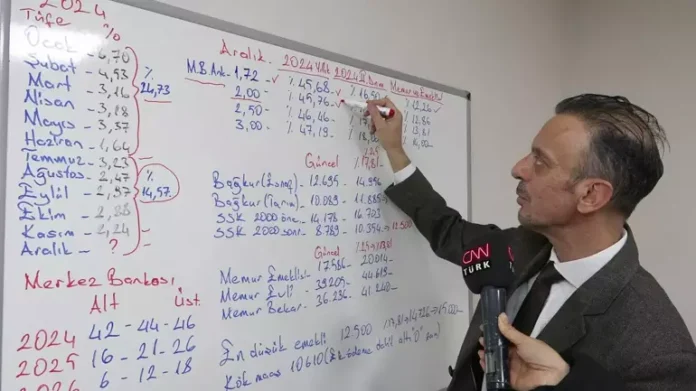 2024
Tüfe %
Ocak - 6,70
Şubat - 4,53
Mart - 3,16
Nisan - 3,18
Mayıs - 3,37
Haziran - 1,64
% 24,73
Temmuz - 3,23
Ağustos - 2,47
Eylül - 2,97
Ekim - 2,88
Kasım - 2,24
Aralık - ?
% 14,57
Merkez Bankası
Alt Üst
2024 42-44-46
2025 16-21-26
2026 6-12-18
Aralık - 2024 Yıllık 2024 II. Dönem Memur ve Emekli
M.B. Ank. 1,72 - % 45,68 - % 16,50 % 12,26
2,00 % 45,76 % 12,86
2,50 - % 46,46 - % 13,81
3,00 - % 47,19 %
Güncel % 17,81
Bağkur (Esnaf) - 12.695 - 14.956
Bağkur (Tarım) - 10.089 - 11.885
SSK 2000 önc. 14.178 - 16.703
SSK 2000 sonr. - 8.789 - 10.354 - 12.500
Güncel
Memur Emeklisi - 17.586 - 20014
Memur Evli - 39205 - 44619
Memur Bekar - 36.296 - 41.240
En düşük emekli 12.500
Kök maaş 10610 (Ek ödeme dahil altı "0" zam)
CNN
TÜRK